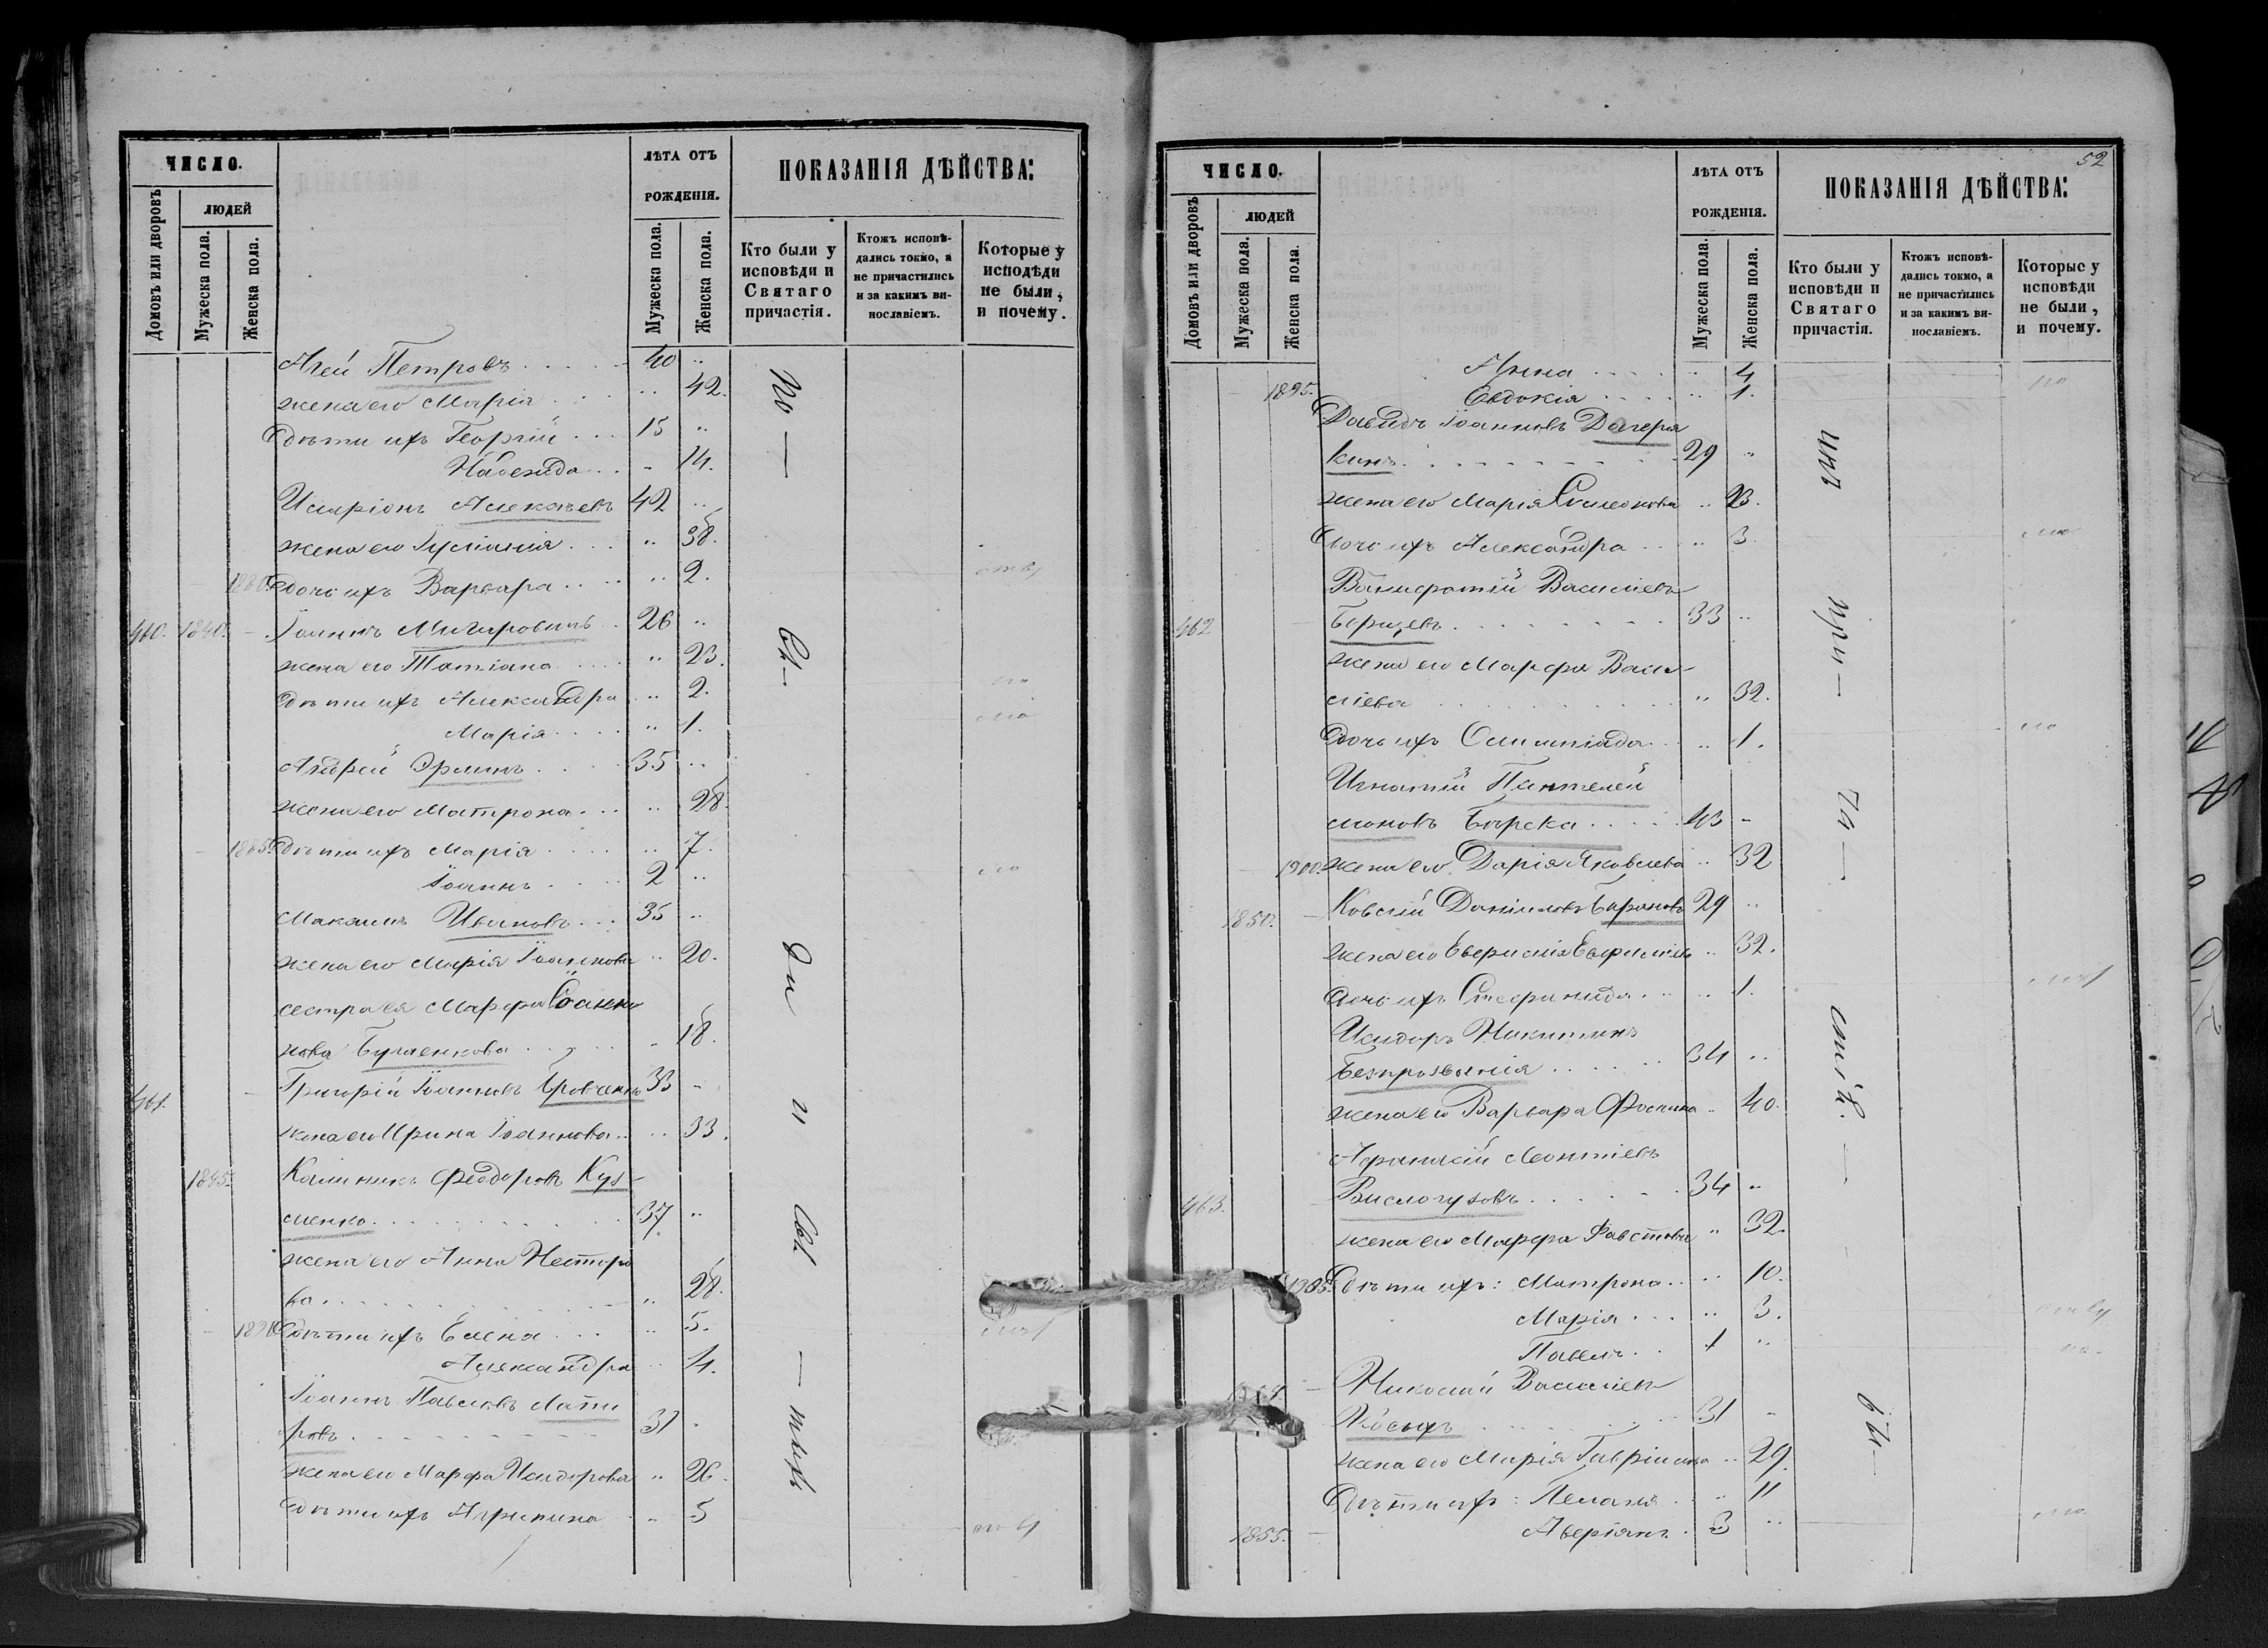 ЧИСЛО.
Домовъ или дворовъ
ЛЮДЕЙ
Мужеска пола.
Женска пола.
ЛѢТА ОТЪ
РОЖДЕНІЯ.
Мужеска пола.
Женска пола.
ПОКАЗАНІЯ ДѢЙСТВА:
Кто были у
исповѣди и
Святаго
причастія.
Ктожъ исповѣ-
дались токмо, а
не причастились
и за какимъ ви-
нословіемъ.
Которые у
исповѣди
не были,
и почему.
Агей Петровъ 40
жена его Марія 42.
дѣти ихъ Георгій 15
Надежда 14.
Иларіонъ Алексѣевъ 42
жена его Іуліанія 38.
1880. дочь ихъ Варвара 2.
460. 1840. Іоаннъ 26
жена его Татіана 23.
дѣти ихъ Александра 2.
Марія 1.
Андрей Эрлинъ 35
жена его Матрона 28.
1885. дѣти ихъ Марія 7.
Іоаннъ 2
Максимъ Ивановъ 35
жена его Марія Іоаннова 20.
сестра ея Марфа Іоанно
нова 18.
461. Григорій Іоанновъ 33
жена его Ирина Іоаннова 33.
1845. Калинникъ Феодоровъ Куз-
менко 37
жена его Анна Несторо
ва 28.
1890. дѣти ихъ Елена 5.
Александра 4.
Іоаннъ Павловъ Лати
ровъ 31
жена его Марфа Исидорова 26.
дѣти ихъ Агрипина 5
По —
Ся-
ди
и
Св
— тыхъ
52
ЧИСЛО.
Домовъ или дворовъ
ЛЮДЕЙ
Мужеска пола.
Женска пола.
ЛѢТА ОТЪ
РОЖДЕНІЯ.
Мужеска пола.
Женска пола.
ПОКАЗАНІЯ ДѢЙСТВА:
Кто были у
исповѣди и
Святаго
причастія.
Ктожъ исповѣ-
дались токмо, а
не причастились
и за какимъ ви-
нословіемъ.
Которые у
исповѣди
не были,
и почему.
Анна 4
1895. Евдокія 1.
Давидъ Іоанновъ Дегеря
кинъ 29
жена его Марія Симеонова 23.
дочь ихъ Александра 3.
Василіевъ
462 Борщевъ 33
жена его Марфа Васи-
ліева 32.
дочь ихъ Олимпіада 1.
Игнатій Пантелей
моновъ Бирека 43
1900. жена его Дарія Яковлева 32
1850. Даніиловъ Барановъ 29
жена его 32.
дочь ихъ Стефанида 1.
Исидоръ Никитинъ
Безпрозванія 34
жена его Варвара Фокина 40.
Афанасій Леонтіевъ
463. Вислогузовъ 34
жена его Марфа Фавстова 32.
1905. дѣти ихъ: Матрона 10.
Марія 3.
Павелъ 1
Николай Василіевъ
Косыхъ 31
жена его Марія Гавріилова 29.
дѣти ихъ: 11
1855. Аверіянъ 3
при —
ча —
стій. —
бы —